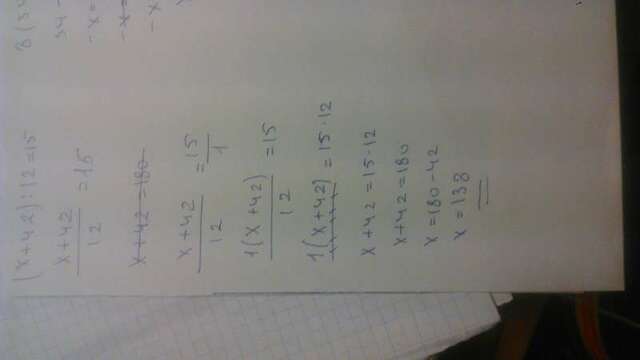 (x+42):12=15
x+42/12 =15
x+42=180
x+42/12 =15/1
1(x+42)/12 =15
1(x+42)=15·12
x+42=15·12
x+42=180
x=180-42
x=138
8(34
34-
-x=
-x=
-x